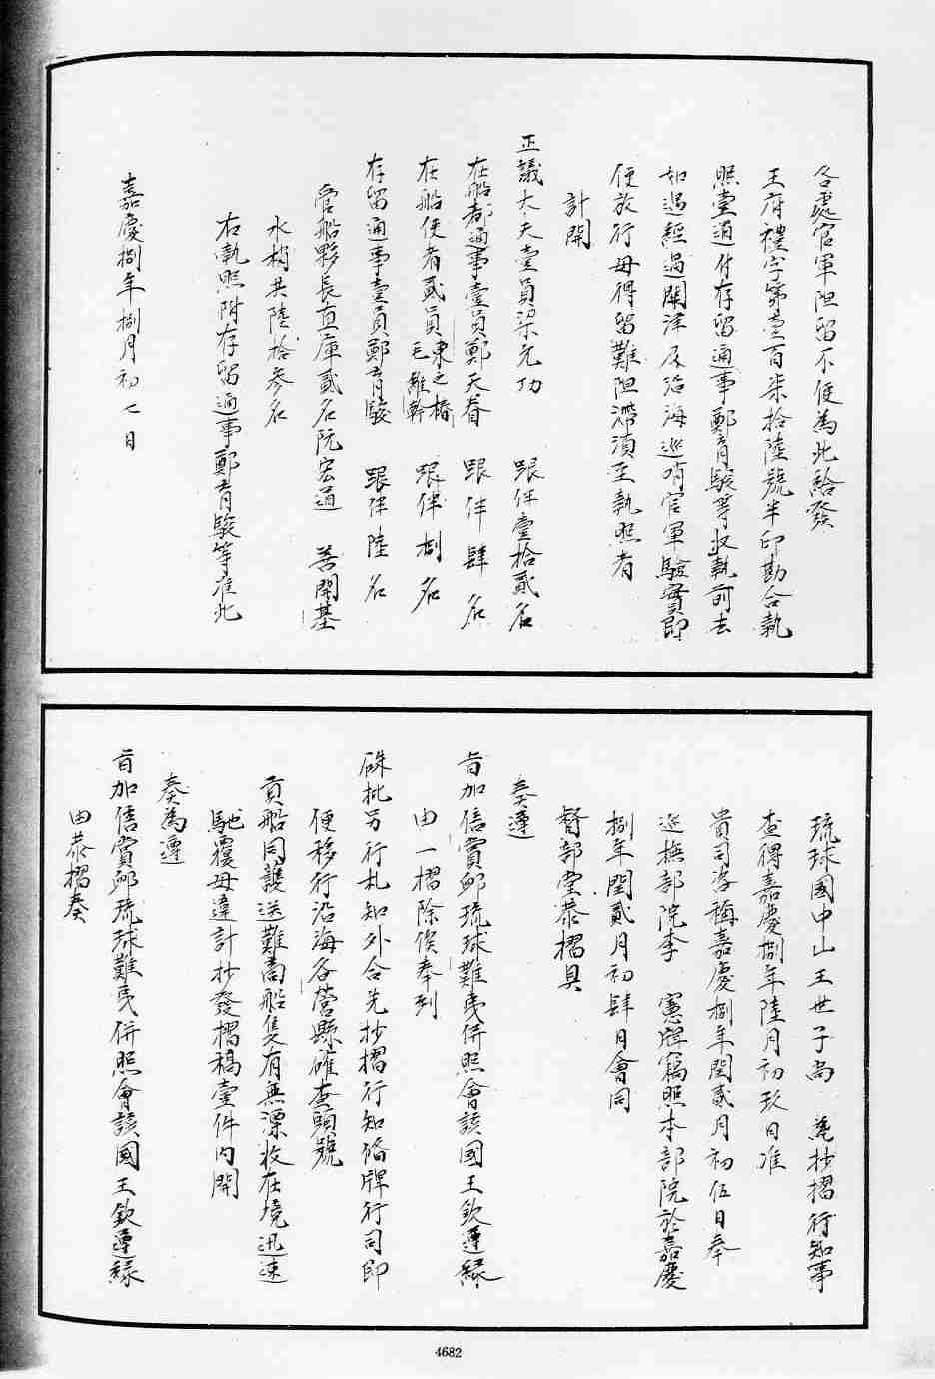 各處官軍阻留不便為此給發
王府禮字第壹百柒拾陸號半印勘合執
照壹道付存留通事鄭育駿等收執前去
如遇經過關津及沿海巡哨官軍驗實即
便放行毋得留難阻滯須至執照者
計開
正議大夫壹員梁允功 跟伴壹拾貳名
在船都通事壹員鄭天眷 跟伴肆名
在船使者貳員東之楯 毛維幹 跟伴捌名
存留通事壹員鄭育駿 跟伴陸名
管船夥長直庫貳名阮宏道 開基
水梢共陸拾參名
右執照附存留通事鄭育駿等准此
嘉慶捌年捌月初七日
琉球國中山王世子尚 為抄摺行知事
查得嘉慶捌年陸月初玖日准
貴司咨稱嘉慶捌年閏貳月初伍日奉
巡撫部院李 憲牌竊照本部院於嘉慶
捌年閏貳月初肆日會同
督部堂恭摺具
奏遵
旨加倍賞卹琉球難夷併照會該國王欽遵緣
由一摺除俟奉到
硃批另行札知外合先抄摺行知備牌行司即
便移行沿海各營縣確查頭號
貢船同護送難商船隻有無漂收在境迅速
馳覆毋違計抄發摺稿壹件內開
奏為遵
旨加倍賞卹琉球難夷併照會該國王欽遵緣
由恭摺奏
4682